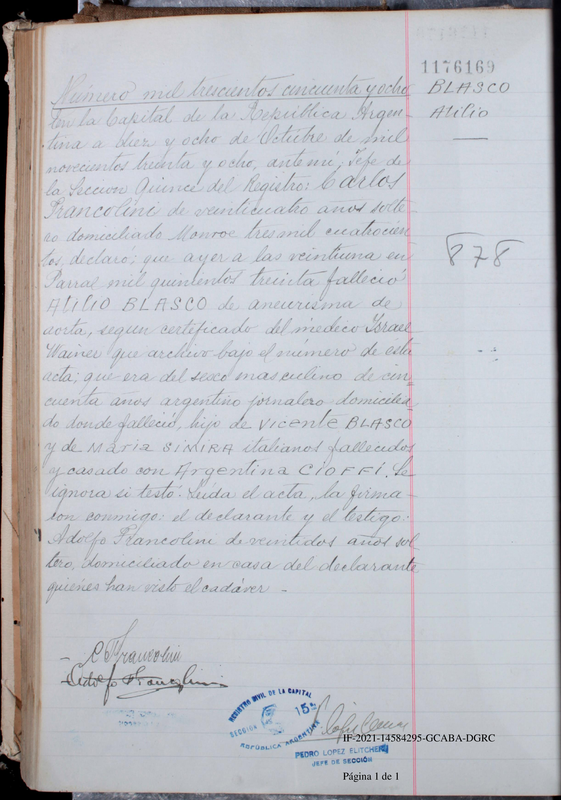 1176169
BLASCO
Atilio
878
Número mil trescientos cincuenta y ocho
En la Capital de la República Argen-
tina a diez y ocho de Octubre de mil
novecientos treinta y ocho, ante mí, Jefe de
la Sección Quince del Registro: Carlos
Francolini de veinticuatro años solte-
ro domiciliado Monroe tres mil cuatrocien-
tos, declaró; que ayer a las veintiuna en
Parral mil quinientos treinta falleció
Atilio BLASCO de aneurisma de
aorta, segun certificado del médico Israel
Wainer que archivo bajo el número de esta
acta; que era del sexo masculino de cin-
cuenta años argentino jornalero domicilia-
do donde falleció, hijo de Vicente BLASCO
y de Maria SIMIRA italianos fallecidos
y casado con Argentina CIOFFI. Se
ignora si testó. Leída el acta, la firma-
ron conmigo: el declarante y el testigo:
Adolfo Francolini de veintidos años sol
tero, domiciliado en casa del declarante
quienes han visto el cadáver -
C Francolini
Adolfo Francolini
REGISTRO CIVIL DE LA CAPITAL
SECCIÓN 15ª
REPÚBLICA ARGENTINA
PEDRO LOPEZ ELITCHERY
JEFE DE SECCIÓN
IF-2021-14584295-GCABA-DGRC
Página 1 de 1